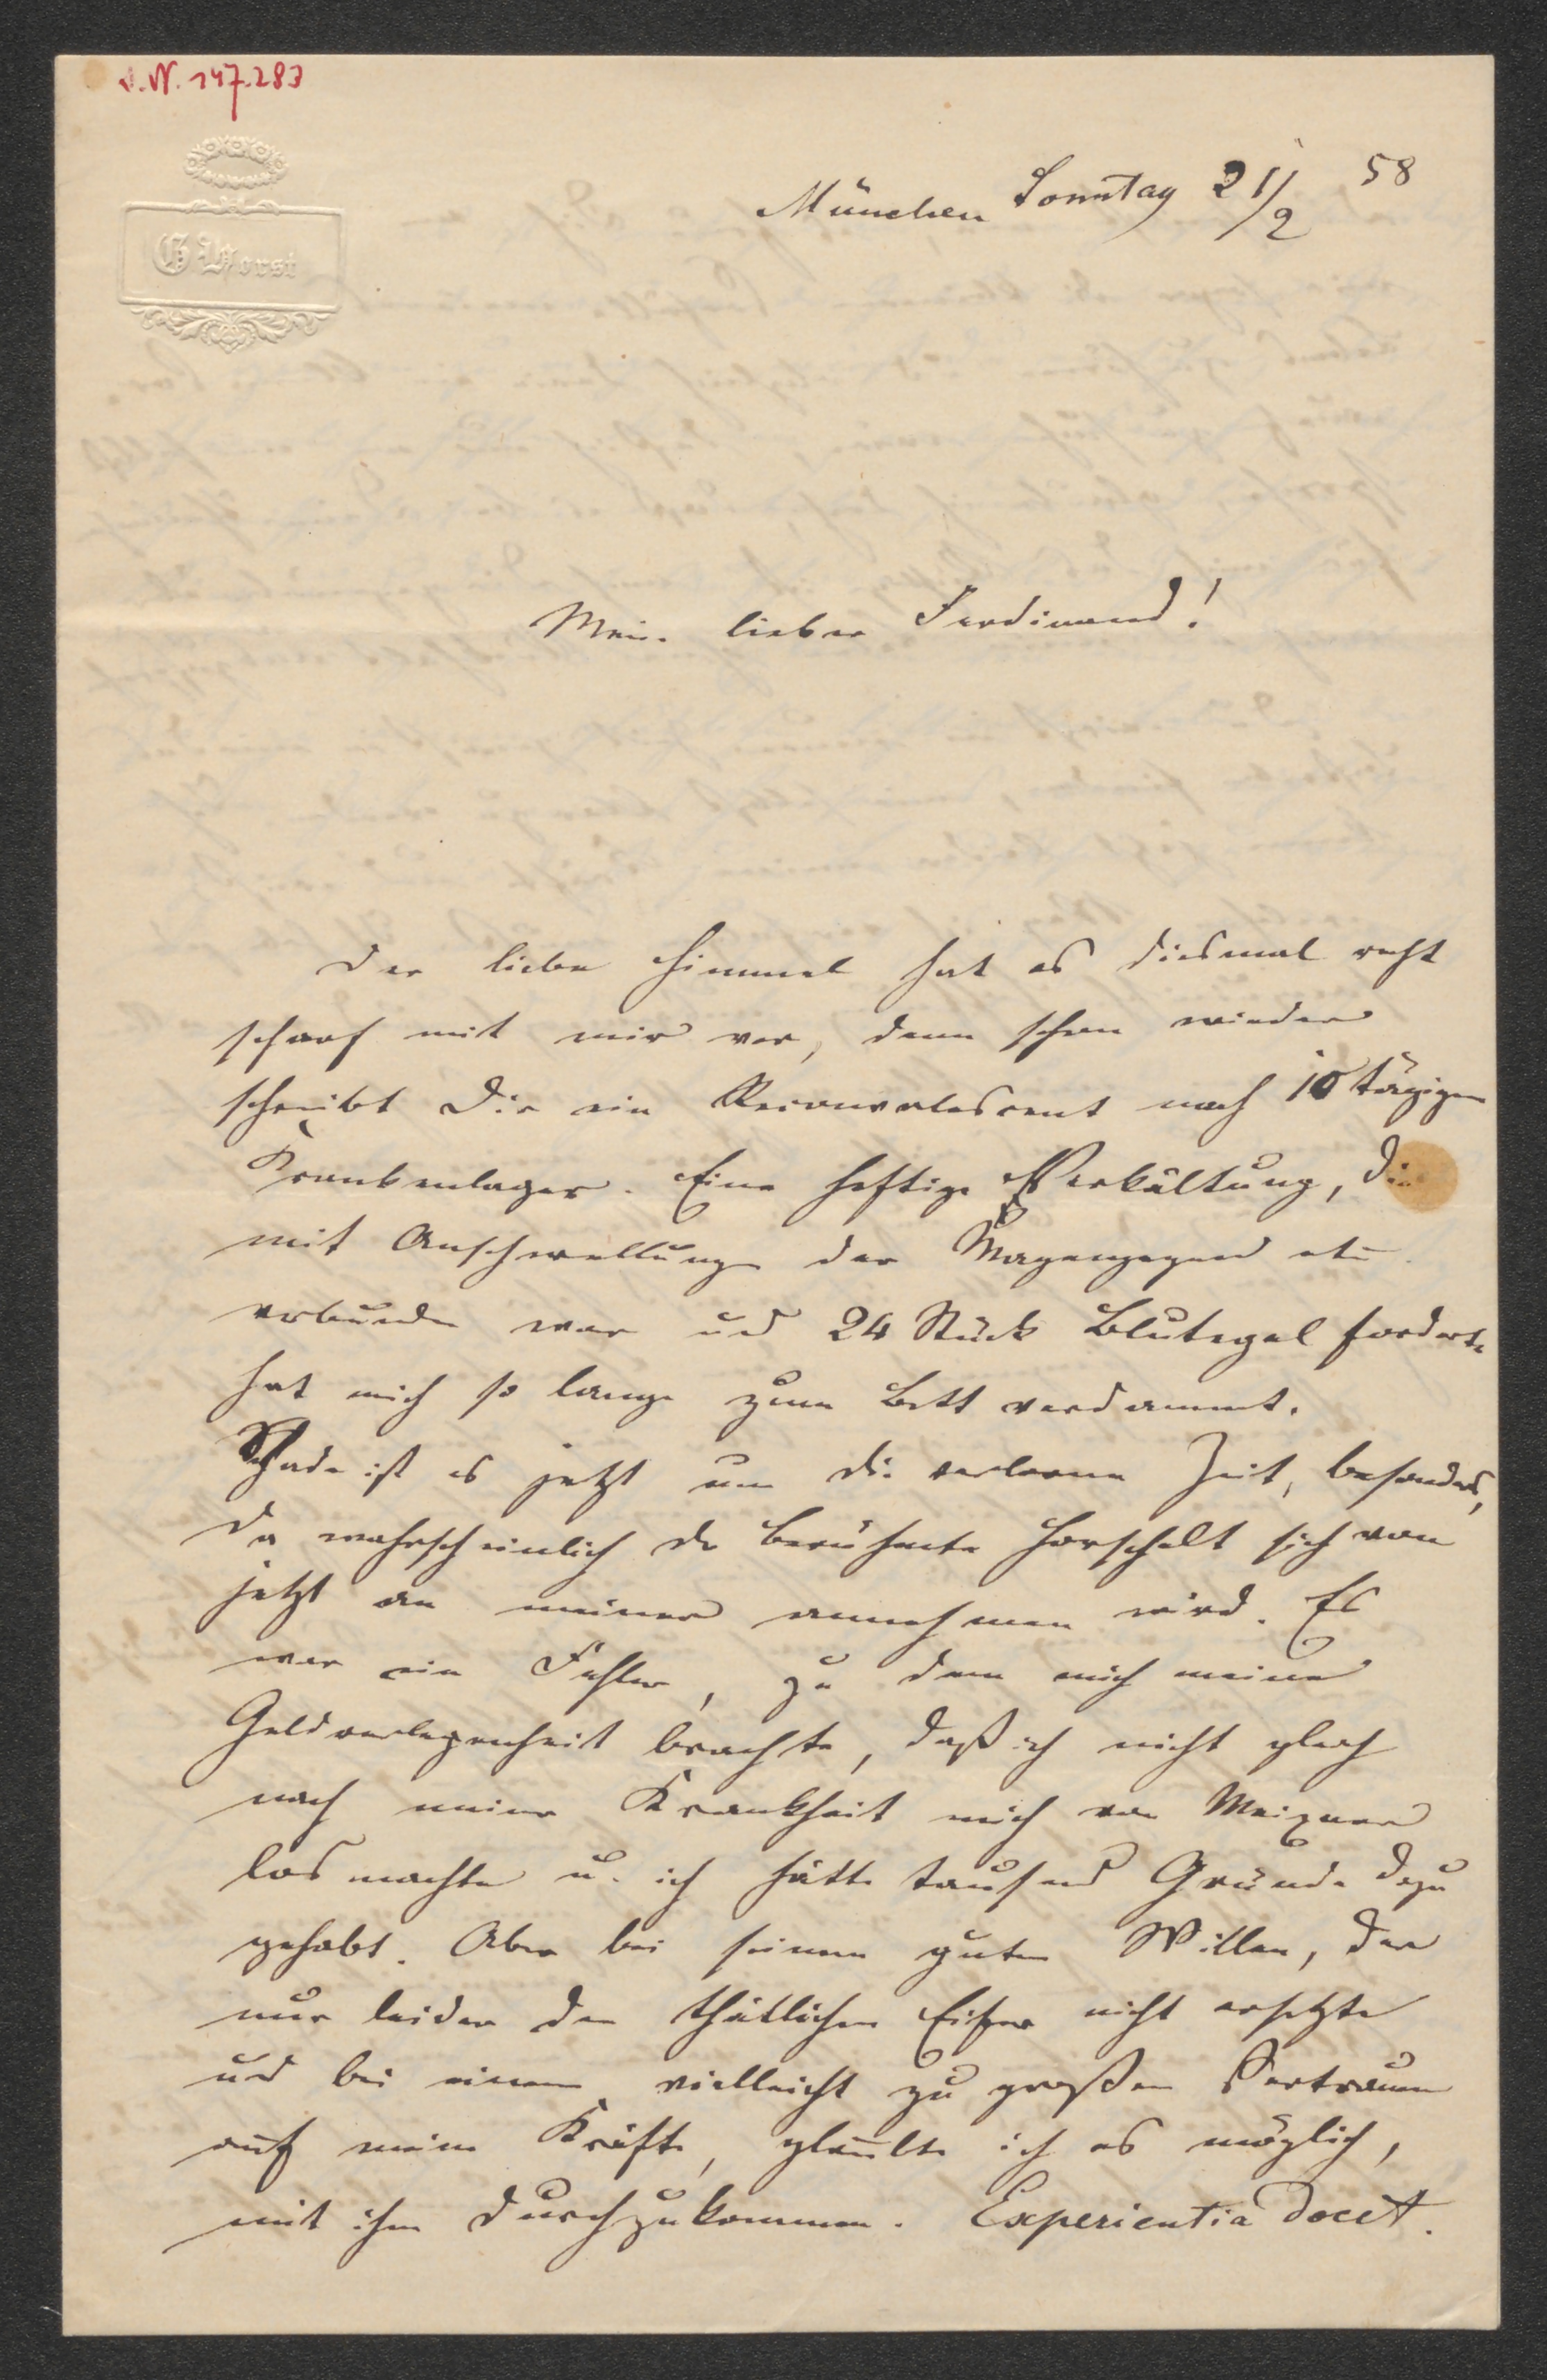 J.N. 147.283
G Horst
München Sonntag 21/2 58
Mein lieber Ferdinand!
Der liebe Himmel hat es diesmal recht
scharf mit mir vor, denn schon wieder
schreibt Dir ein Reconvalescent nach 10 tägigem
Krankenlager. Eine heftige Verkältung, die
mit Anschwellung der Magengegend etc.
verbunden war und 24 Stück Blutegel forderte
hat mich so lange zum Bett verdammt.
Schade ist es jetzt um die verlorne Zeit, besonders,
da wahrscheinlich der berühmte Horschelt sich von
jetzt an meiner annehmen wird. Es
war ein Fehler, zu dem mich meine
Geldverlegenheit brachte, daß ich nicht gleich
nach meiner Krankheit mich von
los machte u. ich hätte tausend Gründe dazu
gehabt. Aber bei seinem guten Willen, der
nur leider den thätlichen Eifer nicht ersetzte
und bei einem vielleicht zu großen Vertrauen
auf meine Kräfte, glaubte ich es möglich,
mit ihm durchzukommen. Experientia docet.